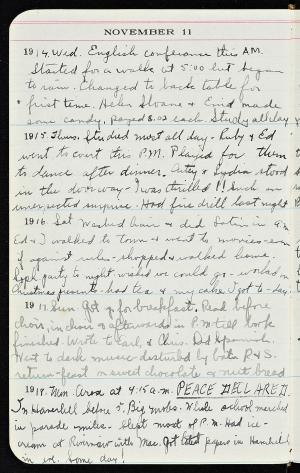 NOVEMBER 11
1914. Wed. English conference this A.M.
Started for a walk at 5:00 but began
to rain. Changed to back table for
first time. Helen Sloane & Enid made
some candy. Payed 8.03 each. Study all day
1915. Thurs. Studied most all day. Ruby & Ed
went to court this P.M. Played for them
to dance after dinner. & Lydia stood
in the doorway - I was thrilled!! Such an
unexpected surprise. Had fire drill last night
1916 Sat Washed hair & did Latin in a.m.
Ed & I walked to town & went to movies - even
if against rules - shopped & walked home.
party to night wished we could go - worked on
Christmas presents - had tea & my cake I got to-day.
1917. Sun. Got up for breakfast. Read before
choir, in choir & afterwards in P.M. till book
finished. Wrote to Earl, & Chris. Did Spanish.
Went to dark music disturbed by both R & S.
return - feast mawed chocolate & nut bread
1918. Mon. Arose at 4:15 a.m. PEACE DECLARED.
In Haverhill before 5. Big mobs. Whole school marched
in parade miles. Slept most of P.M. Had ice-
cream at with Mae. Got papers in Haverhill
in eve. Some day!